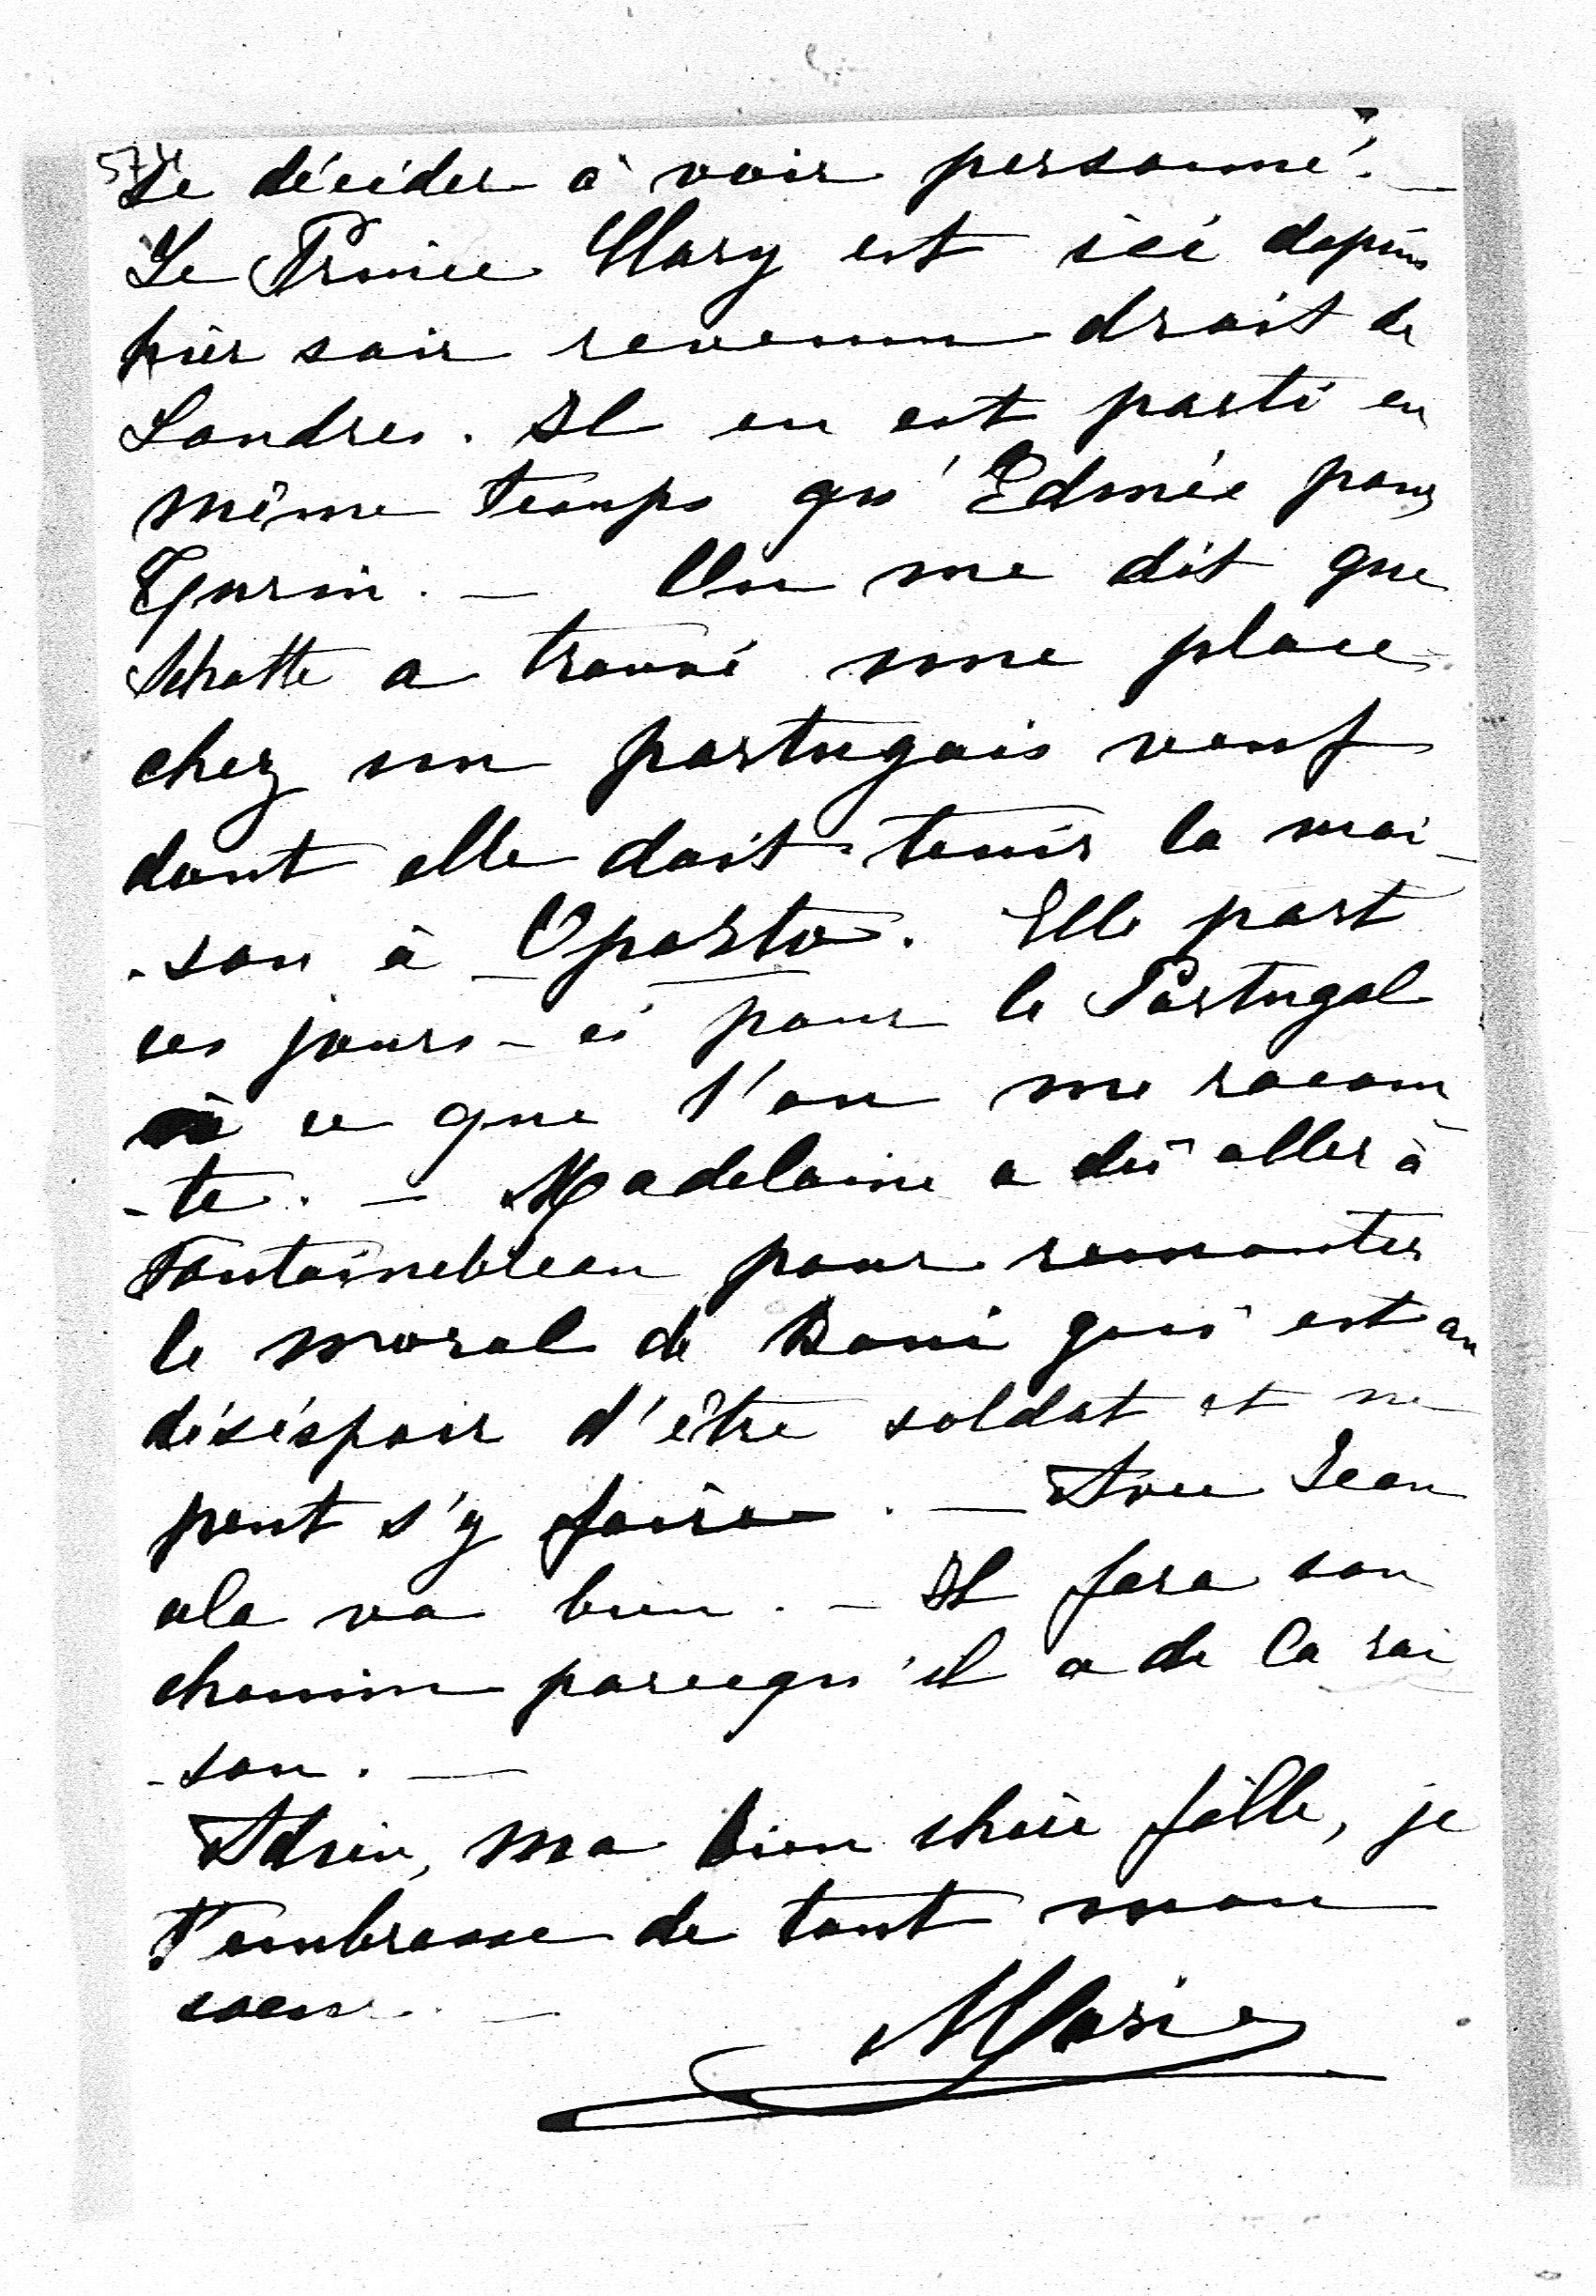 se décider à voir personne. —
Le Prince Clary est ici depuis
hier soir revenu droit de
Londres. Il en est parti en
même temps qu'Edmée pour
Turin. — On me dit que
Schotte a trouvé une place
chez un portugais veuf
dont elle doit tenir la mai-
-son à Oporto. Elle part
ces jours-ci pour le Portugal
à ce que l'on me racon
-te. — Madelaine a dû aller à
Fontainebleau pour remonter
le moral de Boni qui est au
déséspoir d'être soldat et ne
peut s'y faire. — Avec Jean
cela va bien. — Il fera son
chemin parcequ'il a de la rai
-son. —
Adieu, ma bien chère fille, je
t'embrasse de tout mon
coeur. —
Marie